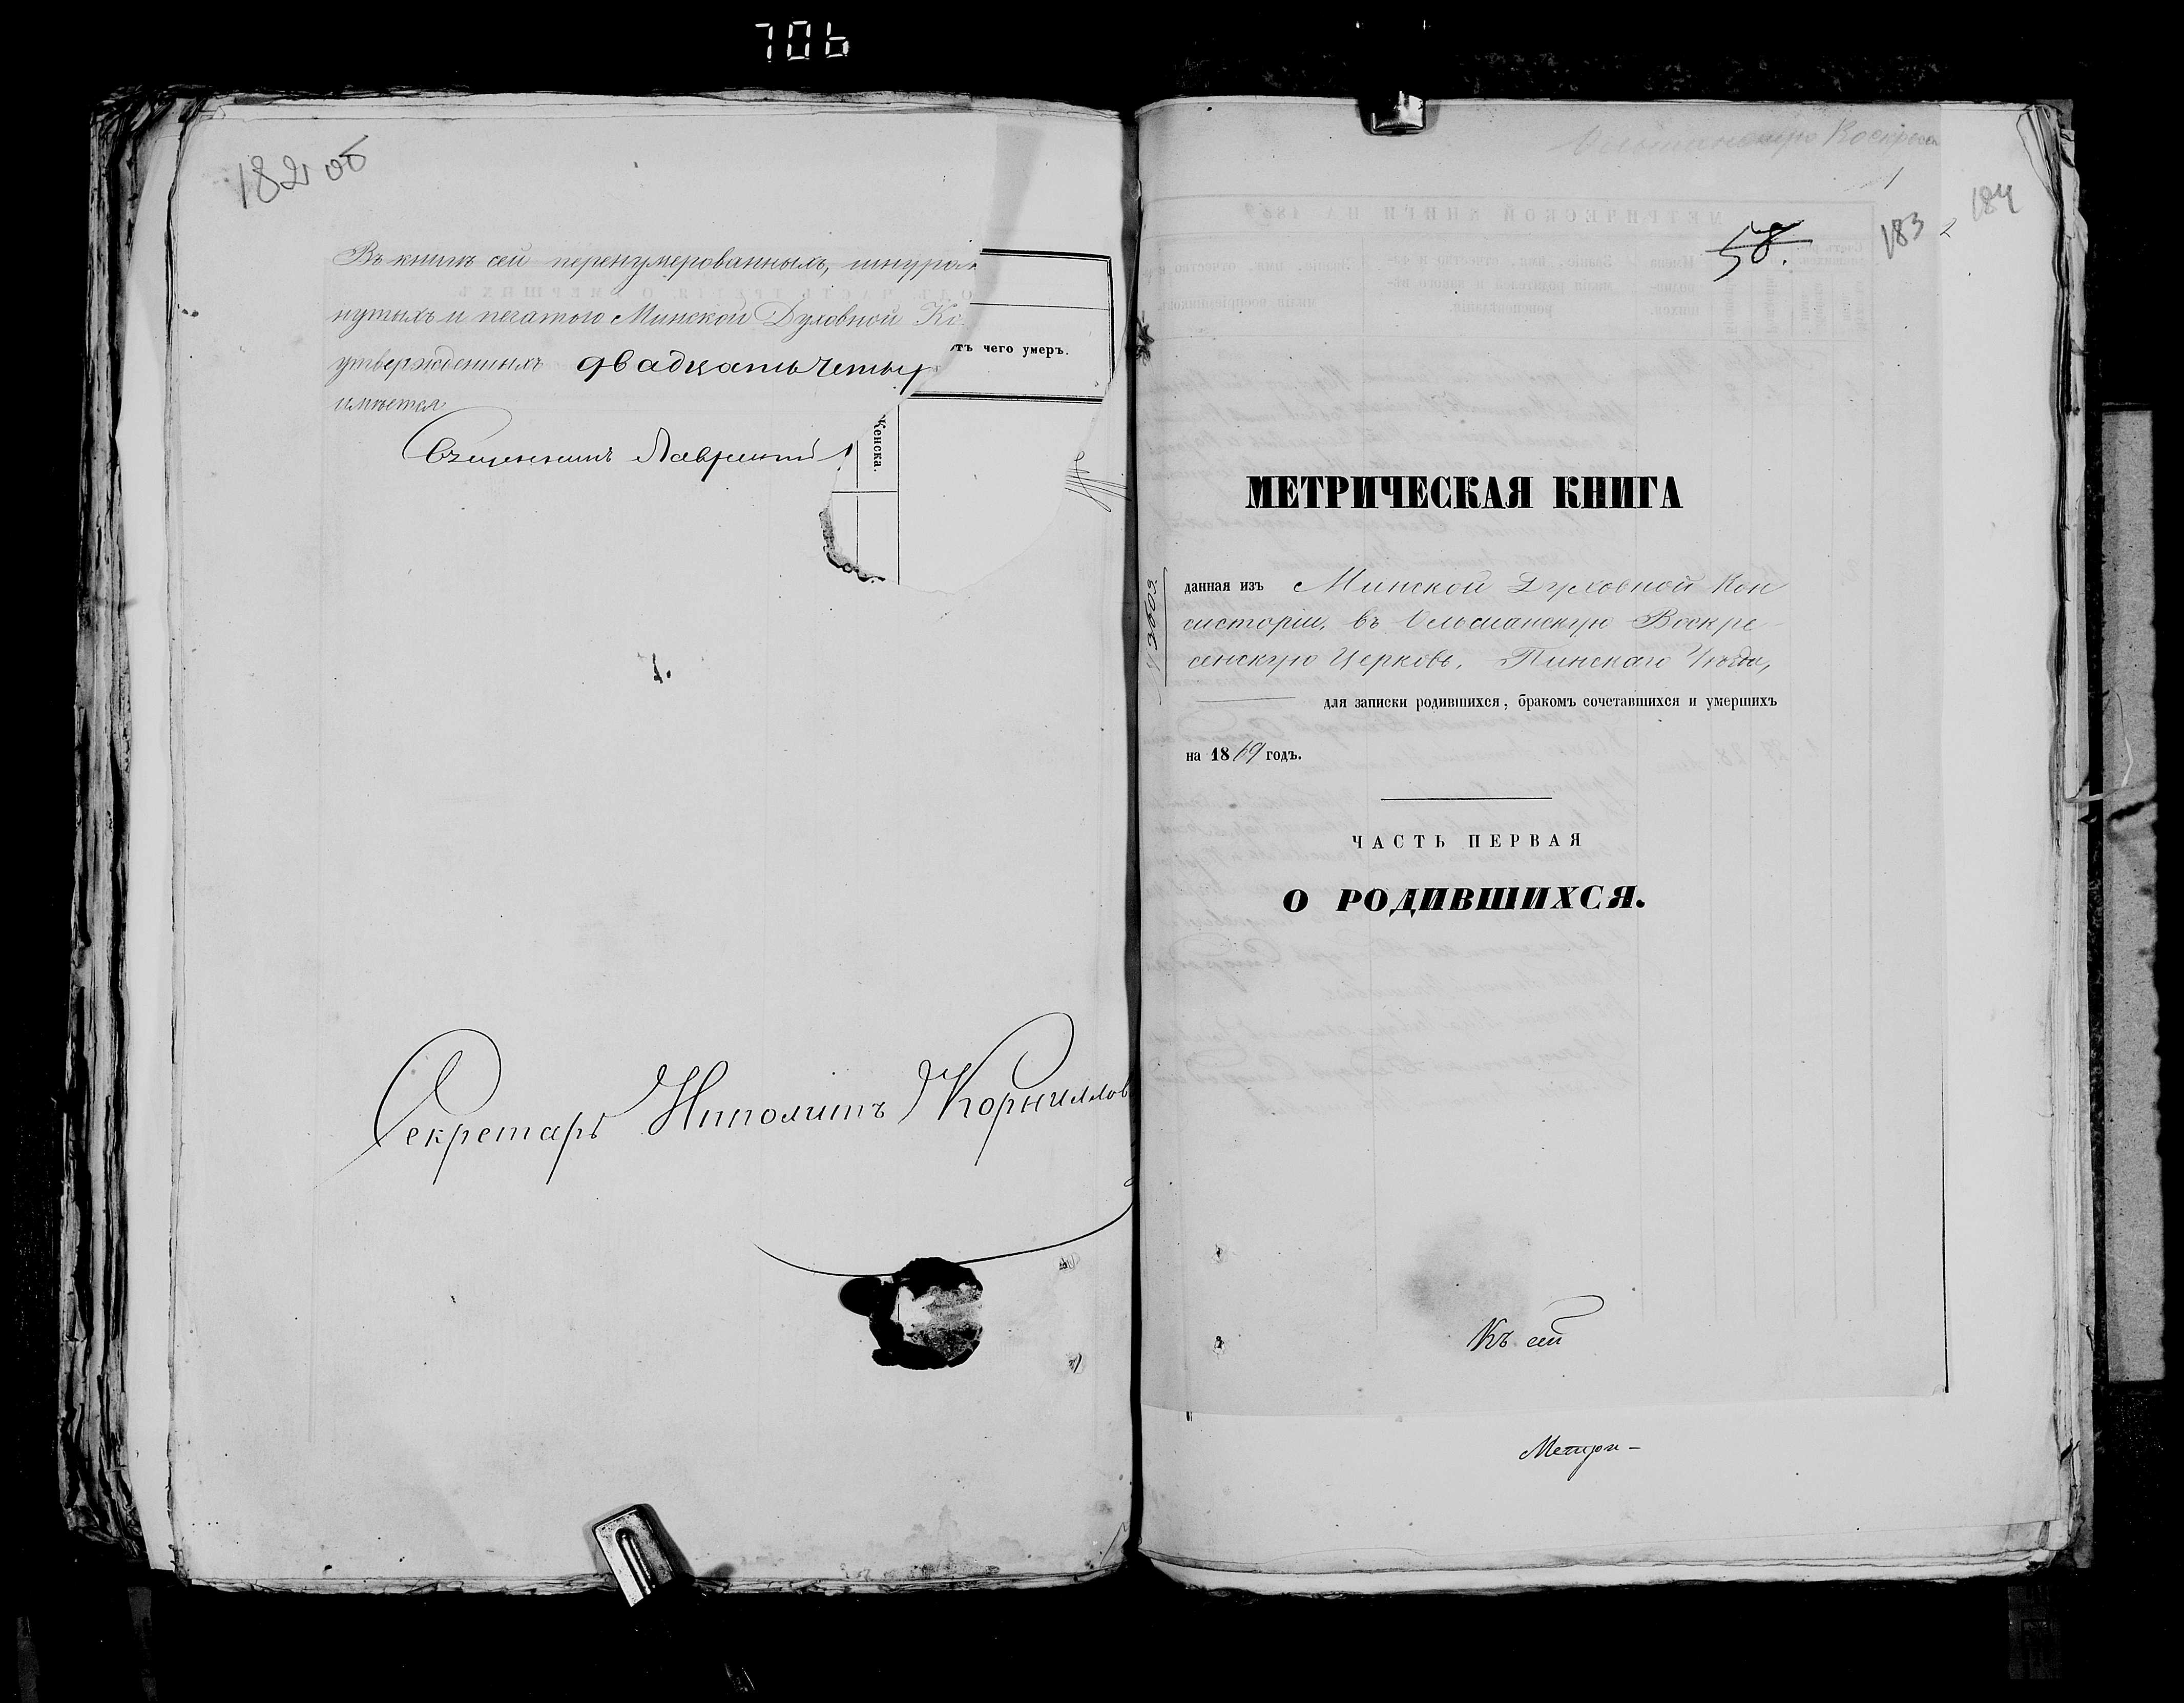 706
182 об
Въ книгѣ сей перенумерованныхъ, шнуром
нутыхъ и печатью Минской Духовной Ко
утвержденныхъ двадцать четыр
имѣется
Священникъ Лаврентій
отъ чего умеръ.
Женска.
Секретарь Ипполитъ Корниллов
Воскресен
1
58.
183
2
184
МЕТРИЧЕСКАЯ КНИГА
данная изъ Минской Духовной Кон
систоріи, въ Ольманскую Воскре-
сенскую Церковь, Пинскаго Уѣзда,
для записки родившихся, бракомъ сочетавшихся и умершихъ
на 1869 годъ.
ЧАСТЬ ПЕРВАЯ
О РОДИВШИХСЯ.
Къ сей
Метри-